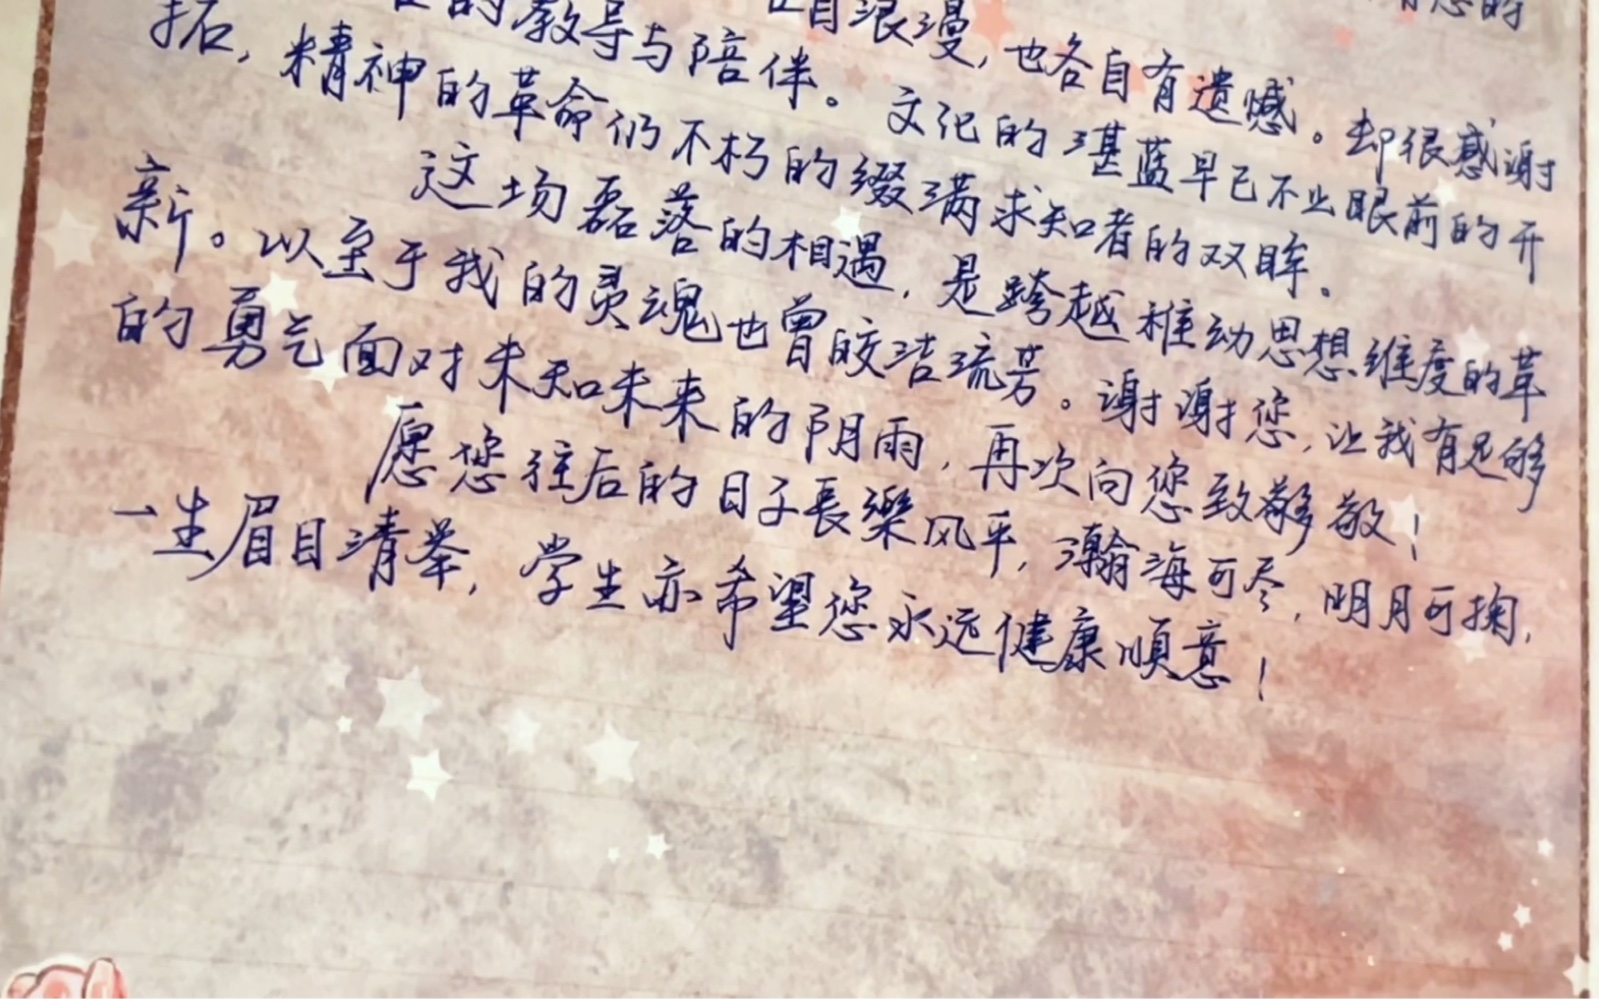 自浪漫，也各自有遗憾。却很感谢
的教导与陪伴。文化的湛蓝早已不止眼前的开
拓，精神的革命仍不朽的缀满求知者的双眸。
这场磊落的相遇，是跨越推动思想维度的革
新。以至于我的灵魂也曾皎洁流芳。谢谢您，让我有足够
的勇气面对未知未来的阴雨，再次向您致敬！
愿您往后的日子長樂风平，瀚海可尽，明月可掬，
一生眉目清举，学生亦希望您永远健康順意！